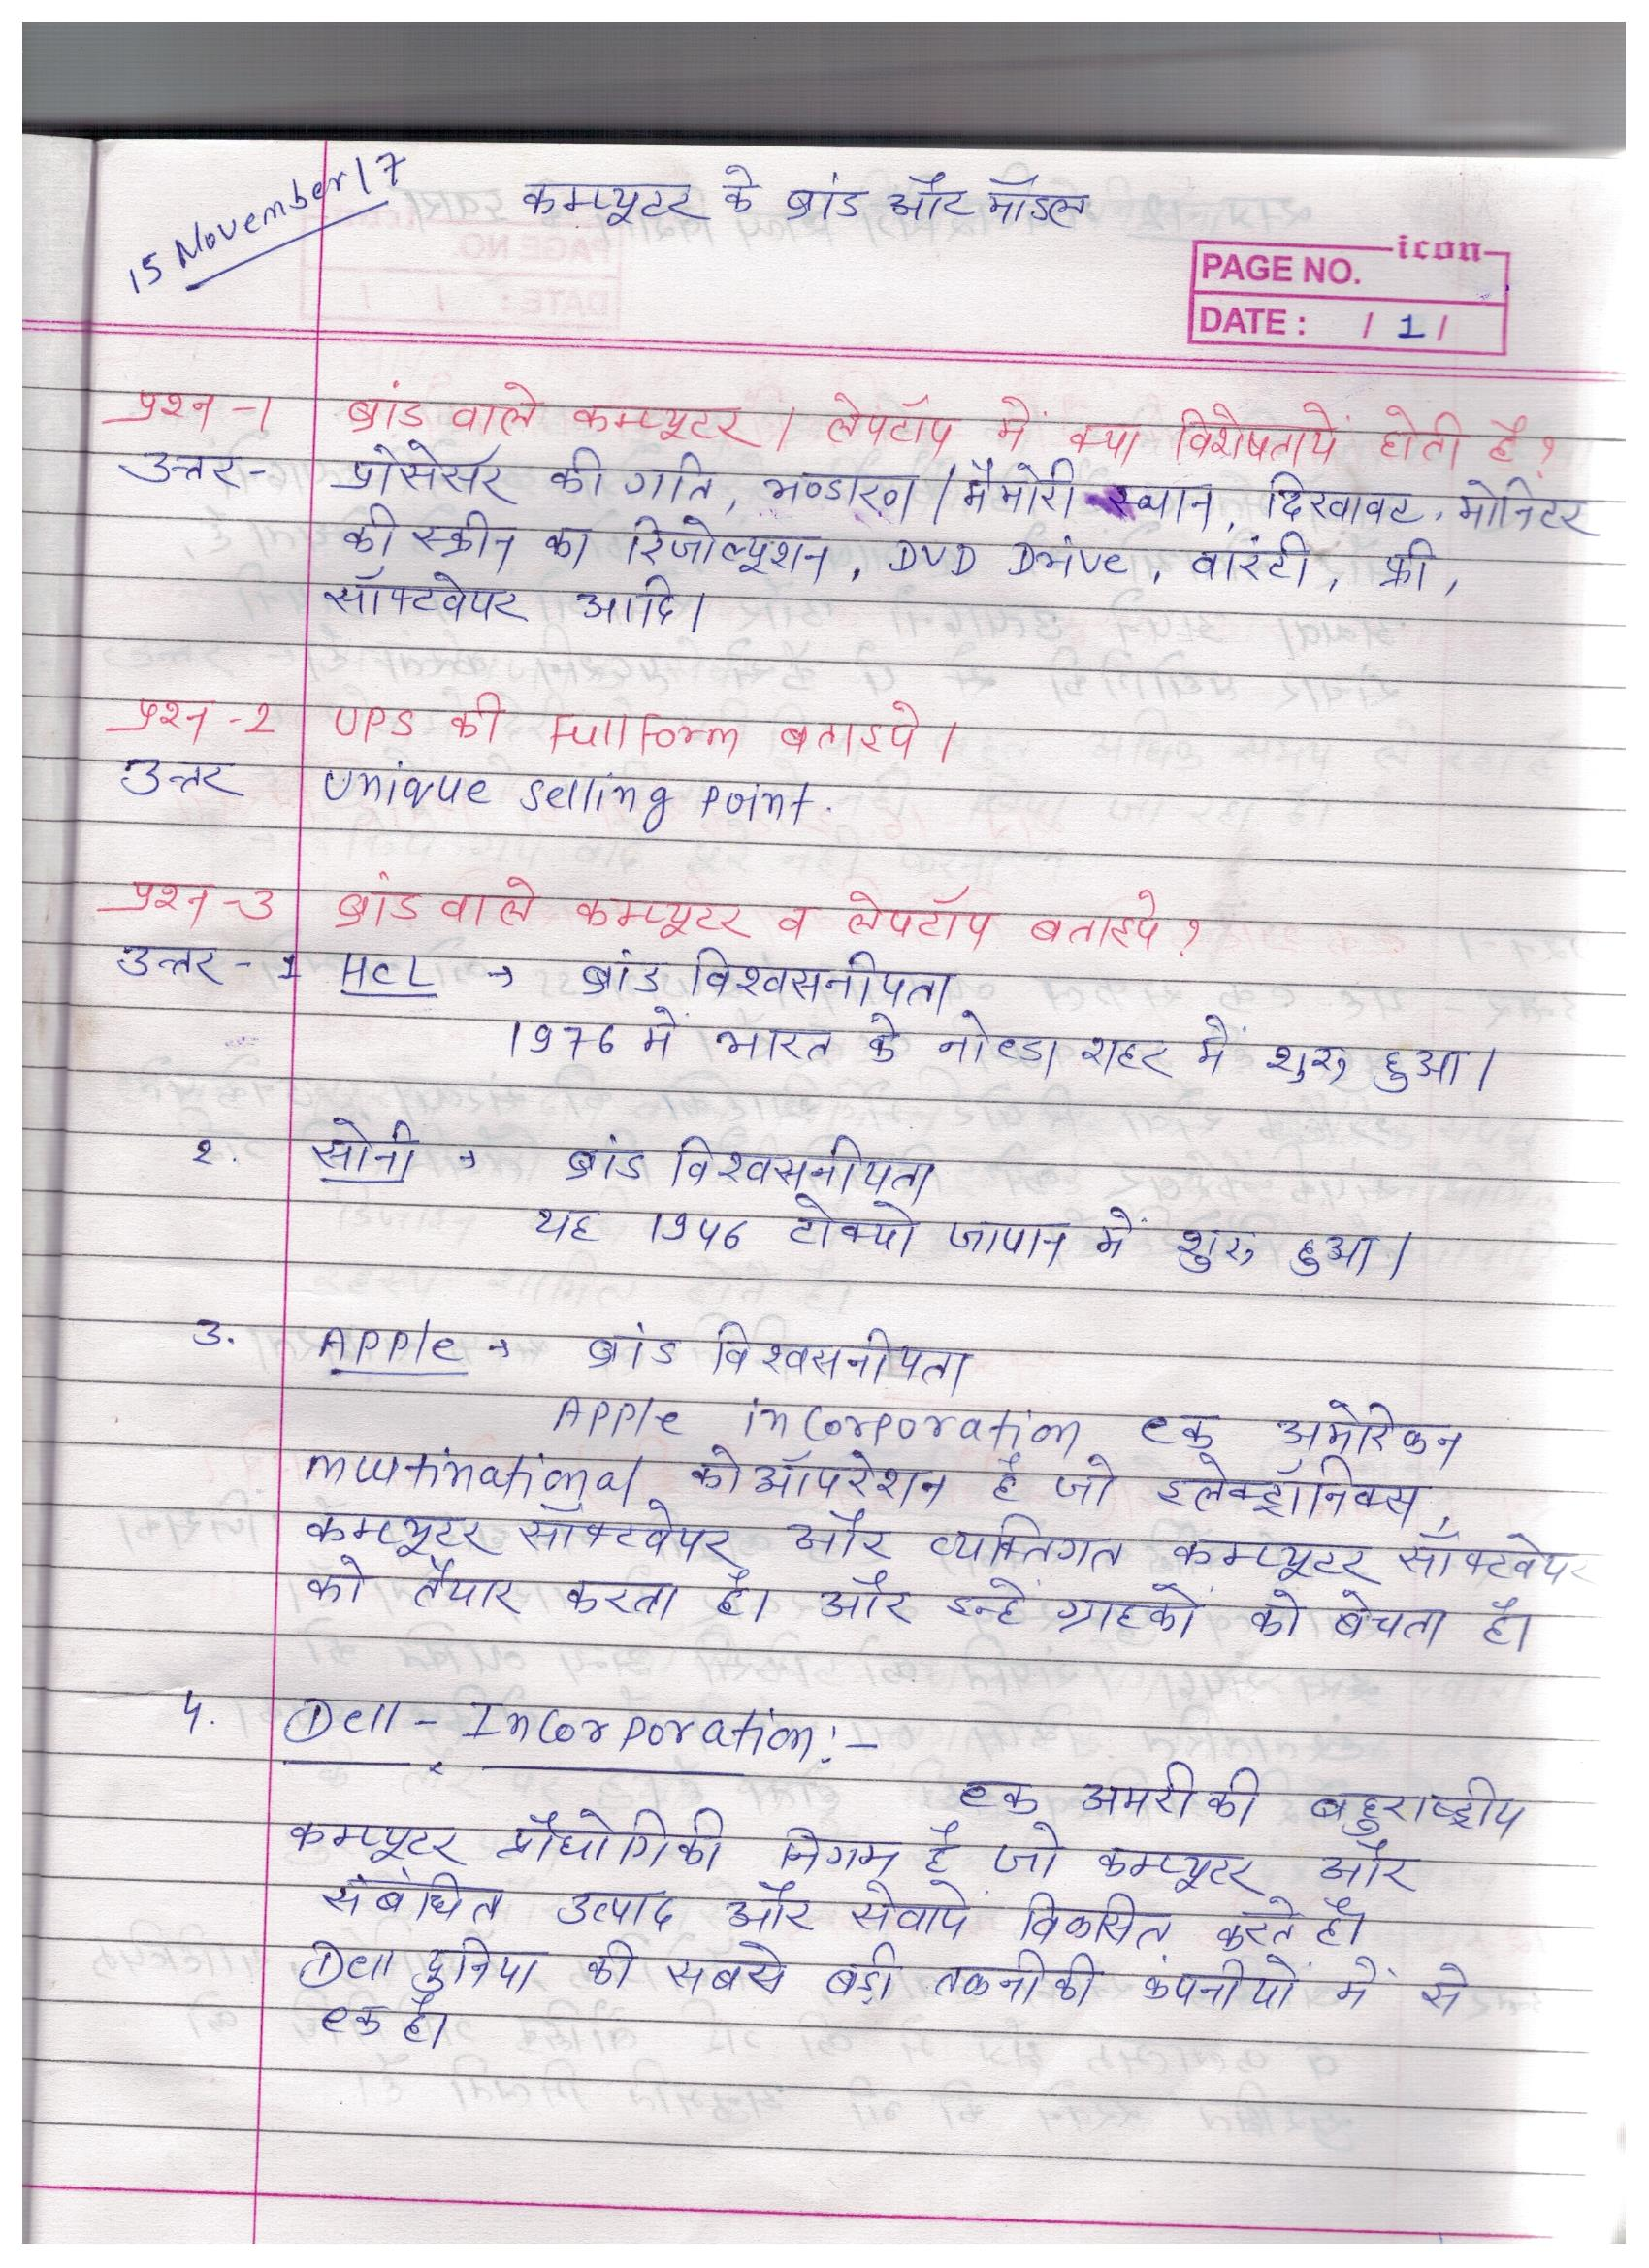 15 November 17
कम्प्यूटर के ब्रांड और मॉडल
icon
PAGE NO.
DATE : / 1 /
प्रश्न -1 ब्रांड वाले कम्प्यूटर / लेपटॉप में क्या विशेषतायें होती है ?
उत्तर - प्रोसेसर की गति, भण्डारण / मैमोरी स्थान, दिखावट, मोनिटर
की स्क्रीन का रिजोल्यूशन, DVD Drive, वारंटी, फ्री,
सॉफ्टवेयर आदि।
प्रश्न -2 UPS की Full Form बताइये।
उत्तर Unique Selling Point.
प्रश्न -3 ब्रांड वाले कम्प्यूटर व लेपटॉप बताइये ?
उत्तर - 1 HCL → ब्रांड विश्वसनीयता
1976 में भारत के नोएडा शहर में शुरू हुआ।
2. सोनी → ब्रांड विश्वसनीयता
यह 1946 टोक्यो जापान में शुरू हुआ।
3. Apple → ब्रांड विश्वसनीयता
Apple incorporation एक अमेरिकन
multinational कोऑपरेशन है जो इलेक्ट्रॉनिक्स,
कम्प्यूटर सॉफ्टवेयर और व्यक्तिगत कम्प्यूटर सॉफ्टवेयर
को तैयार करता है। और इन्हें ग्राहकों को बेचता है।
4. Dell - Incorporation:-
एक अमरीकी बहुराष्ट्रीय
कम्प्यूटर प्रौद्योगिकी निगम है जो कम्प्यूटर और
संबंधित उत्पाद और सेवायें विकसित करते है।
Dell दुनिया की सबसे बड़ी तकनीकी कंपनीयों में से
एक है।